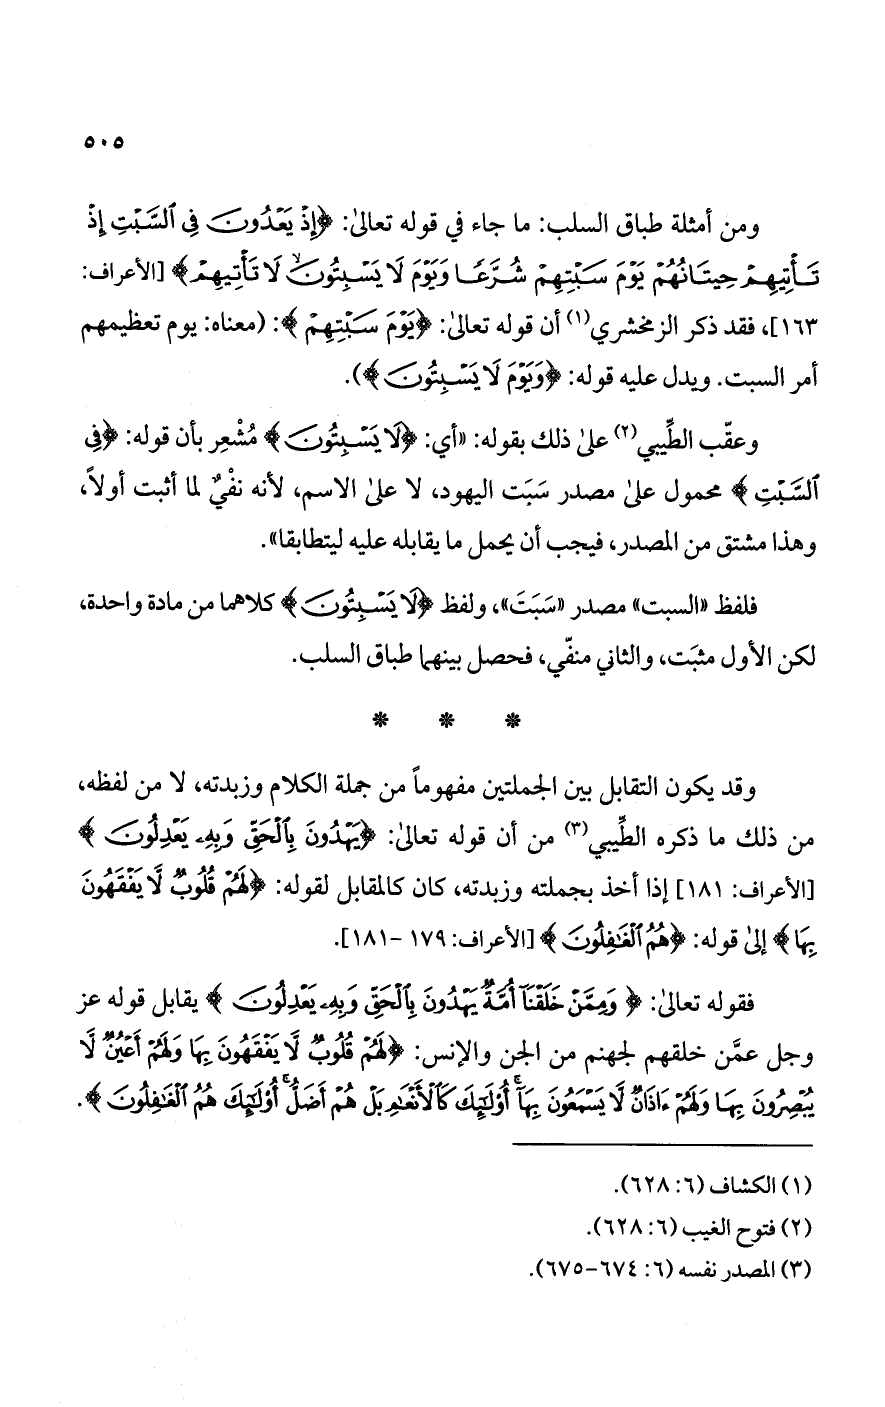 ٥٠٥
ومن أمثلة طباق السلب: ما جاء في قوله تعالىٰ: ﴿إِذْ يَعْدُونَ فِى ٱلسَّبْتِ إِذْ
تَأْتِيهِمْ حِيتَانُهُمْ يَوْمَ سَبْتِهِمْ شُرَّعًا وَيَوْمَ لَا يَسْبِتُونَ ۙ لَا تَأْتِيهِمْ﴾ [الأعراف:
١٦٣]، فقد ذكر الزمخشري(١) أن قوله تعالىٰ: ﴿يَوْمَ سَبْتِهِمْ﴾: (معناه: يوم تعظيمهم
أمر السبت. ويدل عليه قوله: ﴿وَيَوْمَ لَا يَسْبِتُونَ﴾).
وعقّب الطِّيبي(٢) علىٰ ذلك بقوله: «أي: ﴿لَا يَسْبِتُونَ﴾ مُشْعِر بأن قوله: ﴿فِى
ٱلسَّبْتِ﴾ محمول علىٰ مصدر سَبَت اليهود، لا علىٰ الاسم، لأنه نفْيٌ لما أثبت أولاً،
وهذا مشتق من المصدر، فيجب أن يحمل ما يقابله عليه ليتطابقا».
فلفظ «السبت» مصدر «سَبَتَ»، ولفظ ﴿لَا يَسْبِتُونَ﴾ كلاهما من مادة واحدة،
لكن الأول مثبَت، والثاني منفّي، فحصل بينهما طباق السلب.
* * *
وقد يكون التقابل بين الجملتين مفهوماً من جملة الكلام وزبدته، لا من لفظه،
من ذلك ما ذكره الطِّيبي(٣) من أن قوله تعالىٰ: ﴿يَهْدُونَ بِٱلْحَقِّ وَبِهِۦ يَعْدِلُونَ﴾
[الأعراف: ١٨١] إذا أخذ بجملته وزبدته، كان كالمقابل لقوله: ﴿لَهُمْ قُلُوبٌ لَّا يَفْقَهُونَ
بِهَا﴾ إلىٰ قوله: ﴿هُمُ ٱلْغَٰفِلُونَ﴾ [الأعراف: ١٧٩ -١٨١].
فقوله تعالىٰ: ﴿وَمِمَّنْ خَلَقْنَآ أُمَّةٌ يَهْدُونَ بِٱلْحَقِّ وَبِهِۦ يَعْدِلُونَ﴾ يقابل قوله عز
وجل عمَّن خلقهم لجهنم من الجن والإنس: ﴿لَهُمْ قُلُوبٌ لَّا يَفْقَهُونَ بِهَا وَلَهُمْ أَعْيُنٌ لَّا
يُبْصِرُونَ بِهَا وَلَهُمْ ءَاذَانٌ لَّا يَسْمَعُونَ بِهَآ ۚ أُو۟لَٰٓئِكَ كَٱلْأَنْعَٰمِ بَلْ هُمْ أَضَلُّ ۚ أُو۟لَٰٓئِكَ هُمُ ٱلْغَٰفِلُونَ﴾.
(١) الكشاف (٦: ٦٢٨).
(٢) فتوح الغيب (٦: ٦٢٨).
(٣) المصدر نفسه (٦: ٦٧٤-٦٧٥).